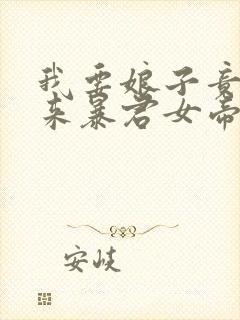 我要娘子竟
来暴君女帝
安岐